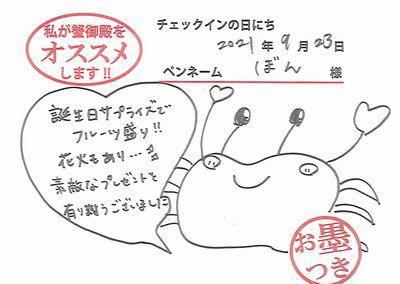 私が蟹御殿を
オススメ
します!!
チェックインの日にち
2021年9月23日
ペンネーム ぼん 様
誕生日サプライズで
フルーツ盛り!!
花火もあり…
素敵なプレゼントと
有り難うございました
お墨
つき